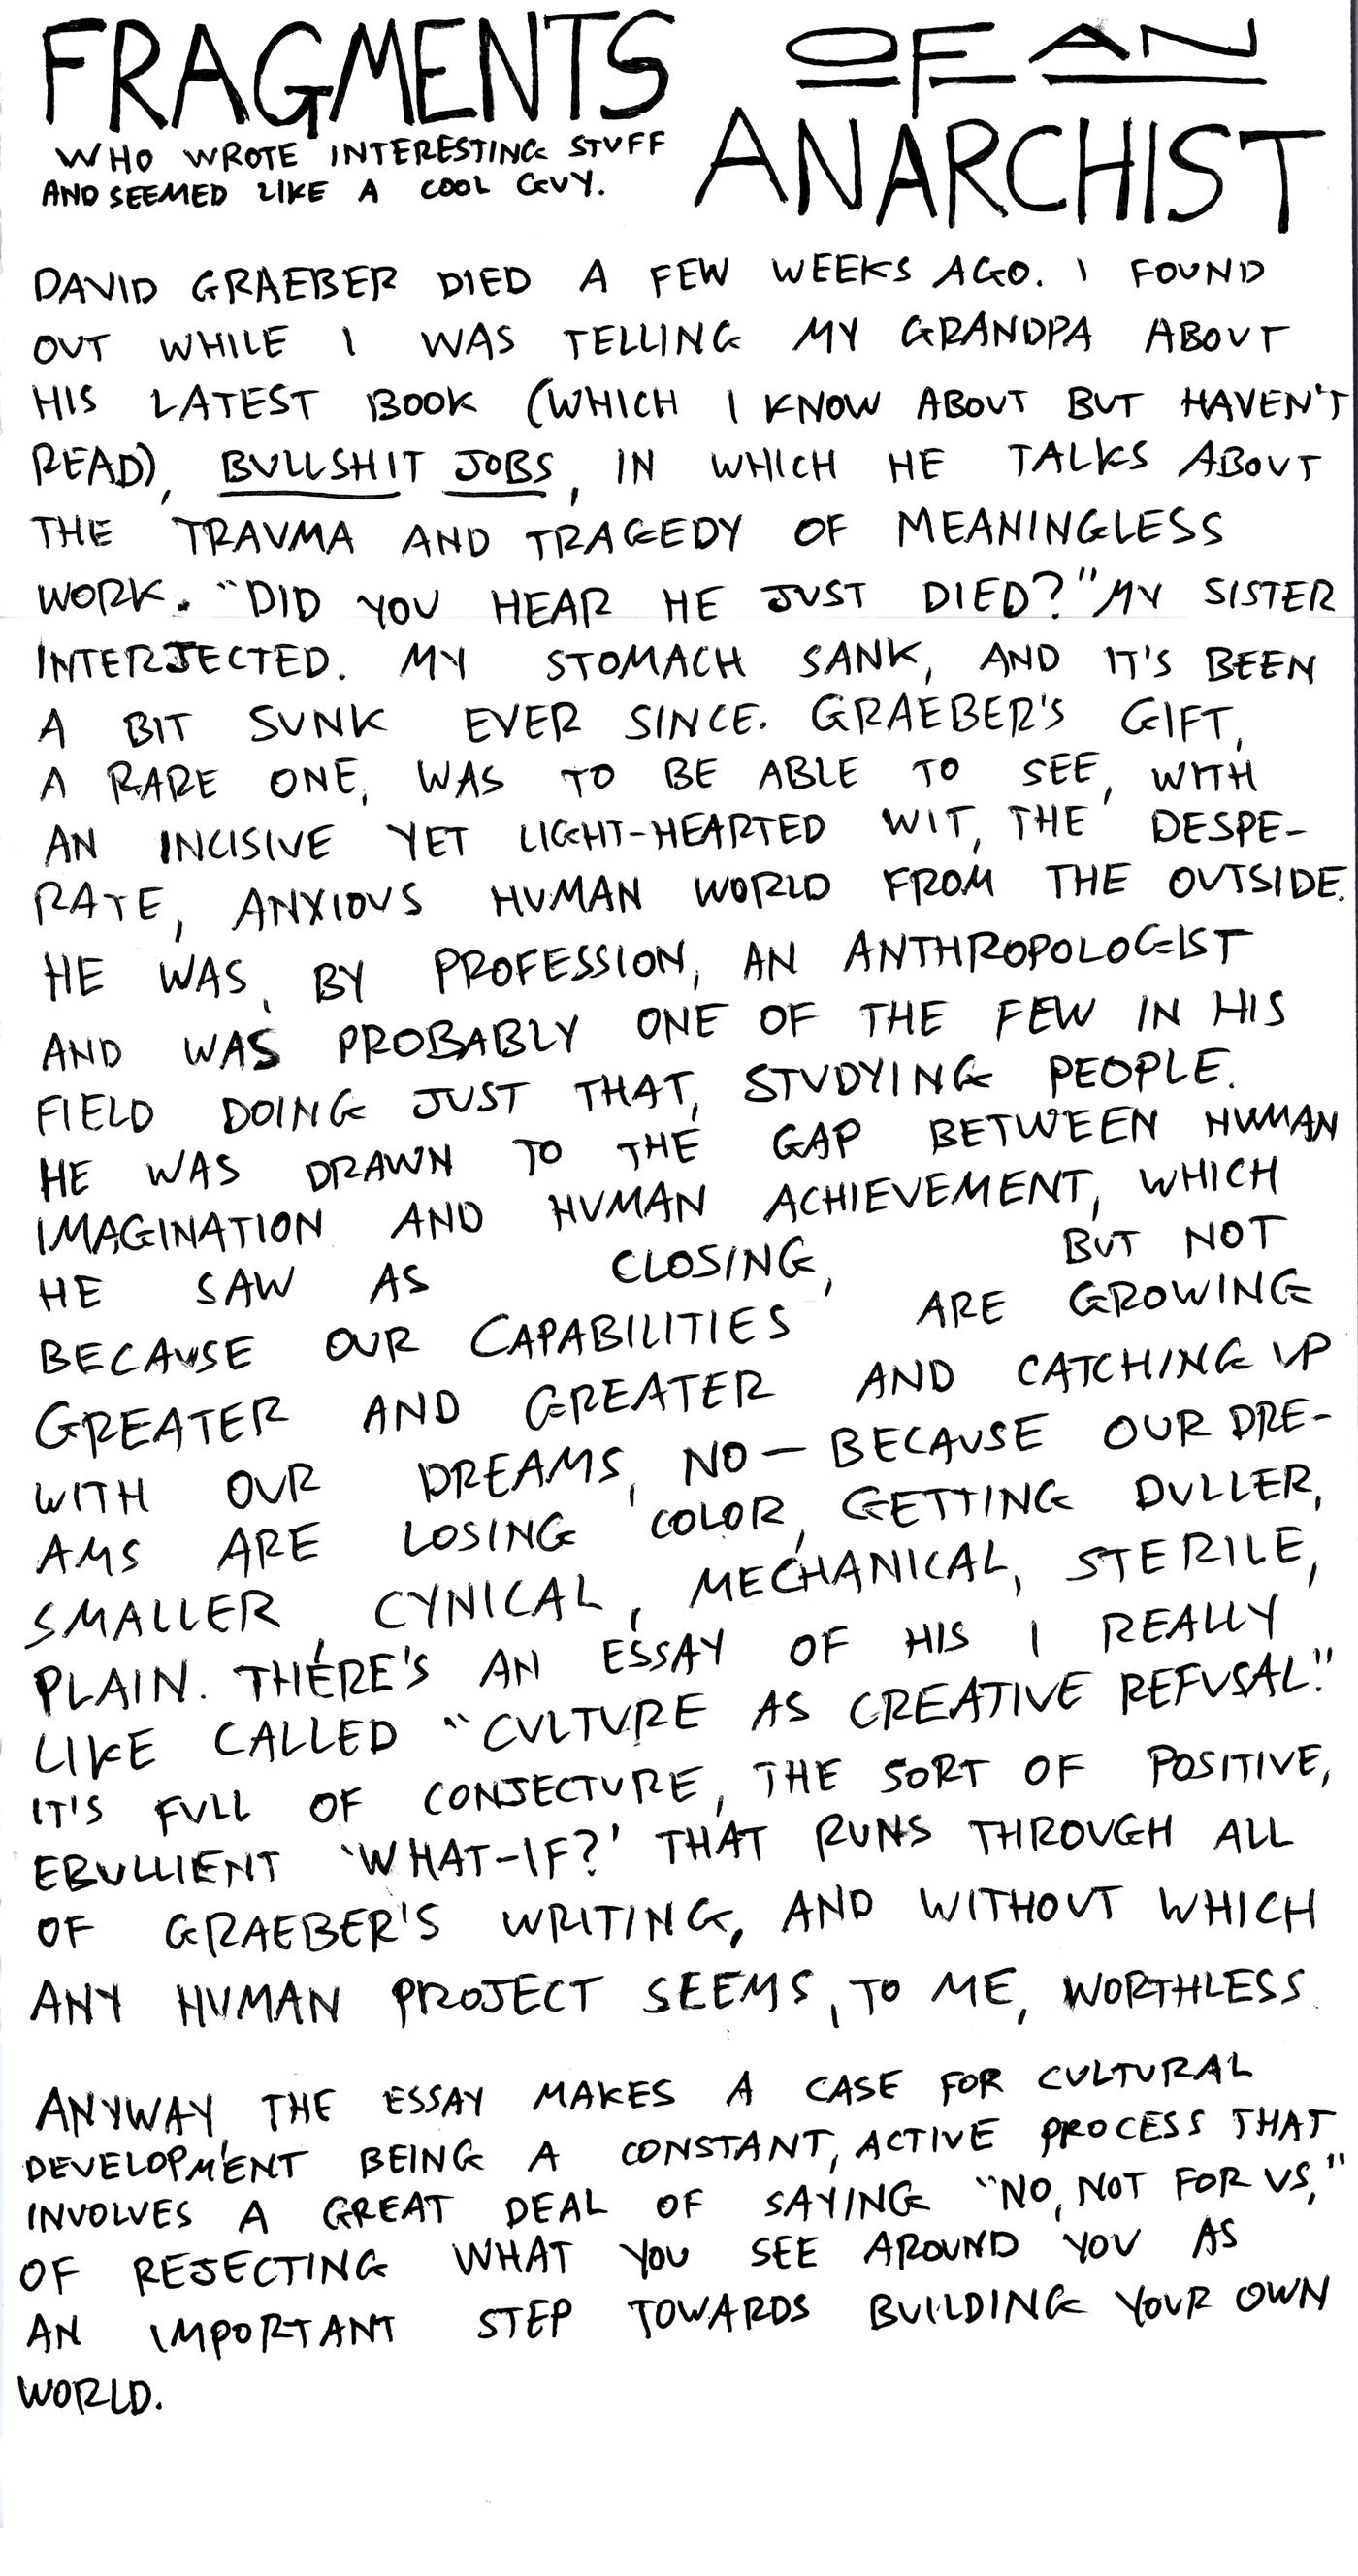 FRAGMENTS OF AN
WHO WROTE INTERESTING STUFF
AND SEEMED LIKE A COOL GUY.
ANARCHIST
DAVID GRAEBER DIED A FEW WEEKS AGO. I FOUND
OUT WHILE I WAS TELLING MY GRANDPA ABOUT
HIS LATEST BOOK (WHICH I KNOW ABOUT BUT HAVEN'T
READ), BULLSHIT JOBS, IN WHICH HE TALKS ABOUT
THE TRAUMA AND TRAGEDY OF MEANINGLESS
WORK. "DID YOU HEAR HE JUST DIED?" MY SISTER
INTERJECTED. MY STOMACH SANK, AND IT'S BEEN
A BIT SUNK EVER SINCE. GRAEBER'S GIFT,
A RARE ONE, WAS TO BE ABLE TO SEE, WITH
AN INCISIVE YET LIGHT-HEARTED WIT, THE DESPE-
RATE, ANXIOUS HUMAN WORLD FROM THE OUTSIDE.
HE WAS, BY PROFESSION, AN ANTHROPOLOGIST
AND WAS PROBABLY ONE OF THE FEW IN HIS
FIELD DOING JUST THAT, STUDYING PEOPLE.
HE WAS DRAWN TO THE GAP BETWEEN HUMAN
IMAGINATION AND HUMAN ACHIEVEMENT, WHICH
HE SAW AS CLOSING, BUT NOT
BECAUSE OUR CAPABILITIES ARE GROWING
GREATER AND GREATER AND CATCHING UP
WITH OUR DREAMS, NO — BECAUSE OUR DRE-
AMS ARE LOSING COLOR, GETTING DULLER,
SMALLER, CYNICAL, MECHANICAL, STERILE,
PLAIN. THERE'S AN ESSAY OF HIS I REALLY
LIKE CALLED "CULTURE AS CREATIVE REFUSAL."
IT'S FULL OF CONJECTURE, THE SORT OF POSITIVE,
EBULLIENT 'WHAT-IF?' THAT RUNS THROUGH ALL
OF GRAEBER'S WRITING, AND WITHOUT WHICH
ANY HUMAN PROJECT SEEMS, TO ME, WORTHLESS.
ANYWAY, THE ESSAY MAKES A CASE FOR CULTURAL
DEVELOPMENT BEING A CONSTANT, ACTIVE PROCESS THAT
INVOLVES A GREAT DEAL OF SAYING "NO, NOT FOR US,"
OF REJECTING WHAT YOU SEE AROUND YOU AS
AN IMPORTANT STEP TOWARDS BUILDING YOUR OWN
WORLD.